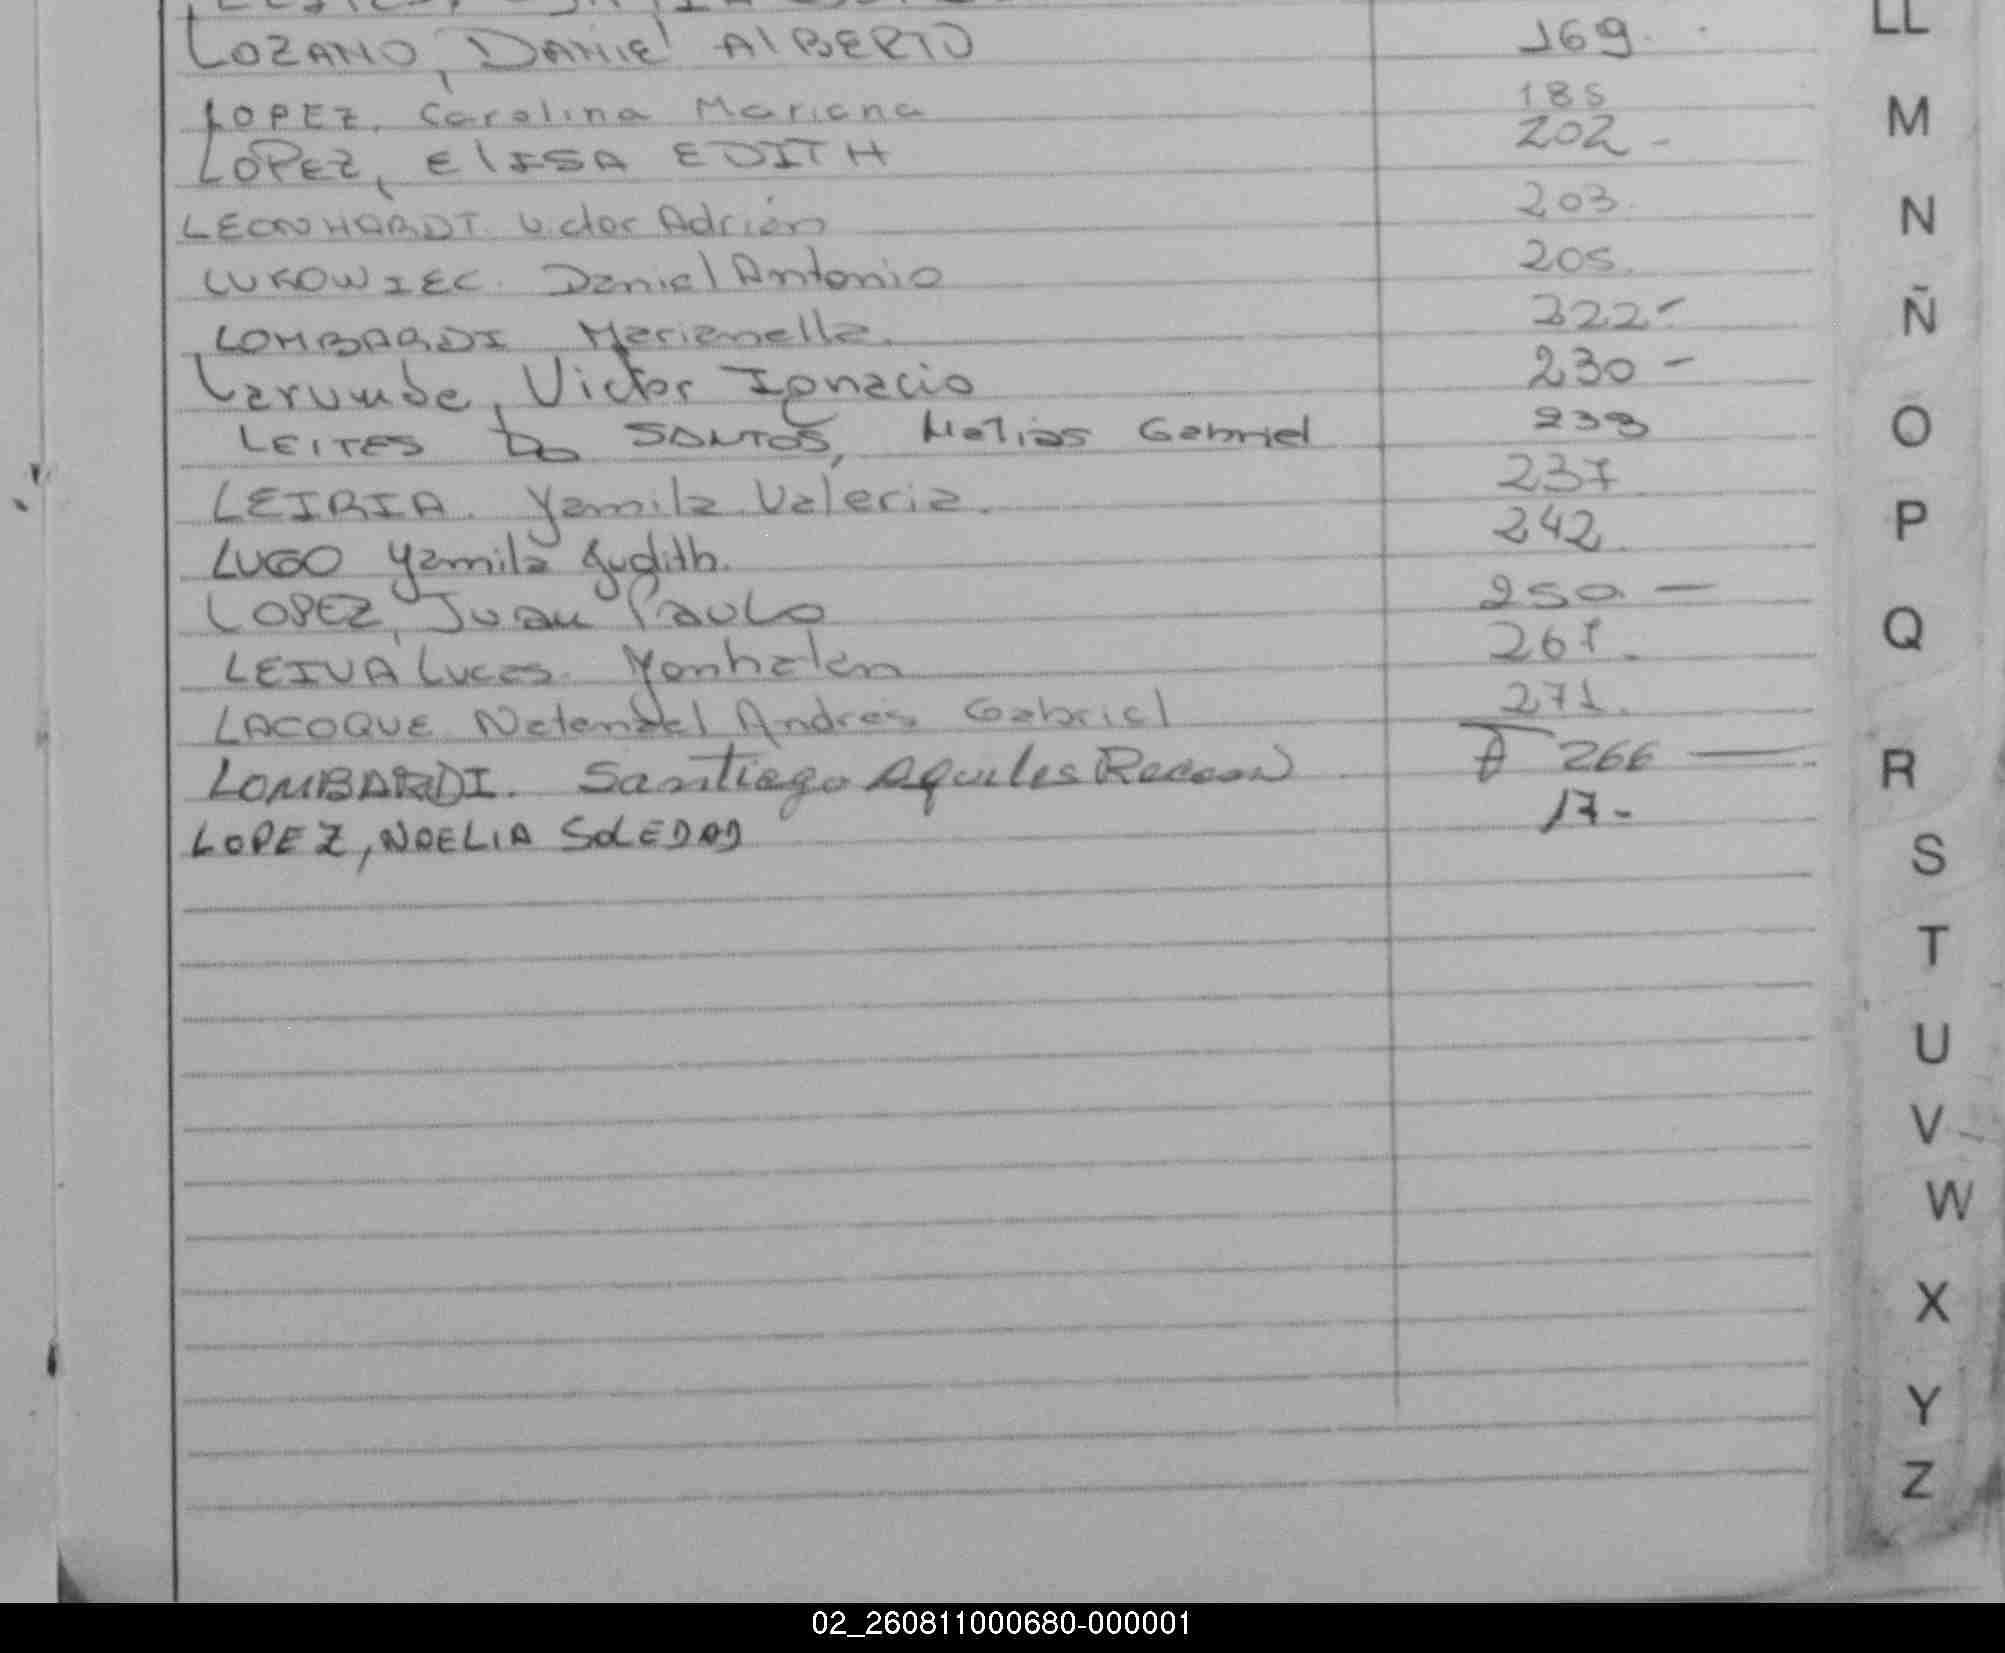 LOZANO, DANIEL ALBERTO 169.
LOPEZ, Carolina Mariana 185
LOPEZ, ELISA EDITH 202 -
LEONHARDT. Victor Adrián 203.
LUKOWIEC. Daniel Antonio 205.
LOMBARDI Marianella. 222 -
Larumbe, Victor Ignacio 230 -
LEITES Do SANTOS, Matias Gabriel 233
LEIRIA. Yamila Valeria. 237
LUGO Yamila Judith. 242.
LOPEZ, Juan Paulo 250. —
LEIVA Lucas Yonhatan 267.
LACOQUE Natanael Andres Gabriel 271.
LOMBARDI. Santiago Aquiles 266 —
LOPEZ, NOELIA SOLEDAD 17 -
LL
M
N
Ñ
O
P
Q
R
S
T
U
V
W
X
Y
Z
02_260811000680-000001